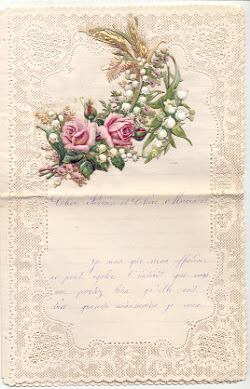 Chère Marraine et Chère Marraine,
Je sais que mon affection
ne peut égaler l'intérêt que vous
me portez bien qu'elle soit
bien grande néanmoins je vous